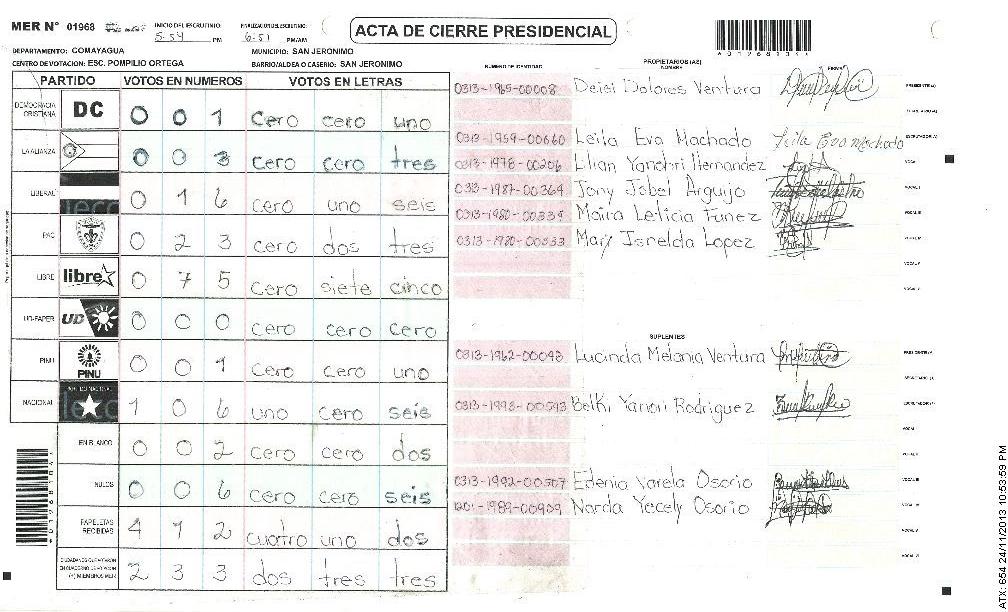 MER N° 01968
INICIO DEL ESCRUTINIO: 5:54 PM
FINALIZACION DEL ESCRUTINIO: 6:51 PM/AM
ACTA DE CIERRE PRESIDENCIAL
DEPARTAMENTO: COMAYAGUA
MUNICIPIO: SAN JERONIMO
CENTRO DE VOTACION: ESC. POMPILIO ORTEGA
BARRIO/ALDEA O CASERIO: SAN JERONIMO
PARTIDO VOTOS EN NUMEROS VOTOS EN LETRAS
DEMOCRACIA CRISTIANA DC 0 0 1 cero cero uno
LA ALIANZA 0 0 3 cero cero tres
LIBERAL 0 1 6 cero uno seis
PAC 0 2 3 cero dos tres
LIBRE libre 0 7 5 cero siete cinco
UD-FAPER UD 0 0 0 cero cero cero
PINU PINU 0 0 1 cero cero uno
NACIONAL 1 0 6 uno cero seis
EN BLANCO 0 0 2 cero cero dos
NULOS 0 0 6 cero cero seis
PAPELETAS RECIBIDAS 4 1 2 cuatro uno dos
CIUDADANOS QUE VOTARON EN CUADERNO DE VOTACION (+) MIEMBROS MER 2 3 3 dos tres tres
NUMERO DE IDENTIDAD
PROPIETARIOS (AS)
NOMBRE
FIRMA
0313-1965-00008 Deisi Dolores Ventura PRESIDENTE (A)
0313-1959-00660 Leila Eva Machado Leila Eva Machado ESCRUTADOR (A)
0313-1978-00206 Lilian Yanohri Hernandez
0313-1987-00369 Jony Jobel Arguijo VOCAL I
0313-1980-00339 Maira Leticia Funez
0313-1980-00533 Mary Isnelda Lopez
SUPLENTES
0313-1962-00093 Lucinda Melania Ventura
0313-1993-00593 Belki Yanori Rodriguez
0313-1992-00507 Edenia Varela Osorio
1201-1989-00909 Narda Yecely Osorio
ATX: 654 24/11/2013 10:53:59 PM